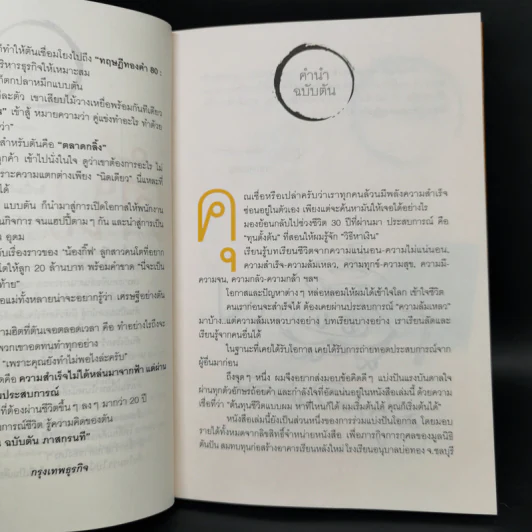 ที่ทำให้ตันเชื่อมโยงไปถึง "ทฤษฎีทองคำ 80 :
บริหารธุรกิจให้เหมาะสม
ก็ตกปลาหมึกแบบตัน
ละตัว เขาเสียบไม้วางเหยื่อพร้อมกันทีเดียว
เข้าสู้ หมายความว่า คู่แข่งทำอะไร ทำด้วย
ว่า"
สำหรับตันคือ "ตลาดกลิ้ง"
ลูกค้า เข้าไปนั่งในใจ ดูว่าเขาต้องการอะไร ไม่
เพราะความแตกต่างเพียง "นิดเดียว" นี่แหละที่
ได้
แบบตัน ก็นำมาสู่การเปิดโอกาสให้พนักงาน
กิจการ จนแฮปปี้ตาม ๆ กัน และนำสู่การเป็น
อุดม
กับเรื่องราวของ "น้องกิ๊ฟ" ลูกสาวคนโตที่อยาก
ให้ลูก 20 ล้านบาท พร้อมคำขาด "นี่จะเป็น
ท้าย"
พ่อแม่ทั้งหลายน่าจะอยากรู้ว่า เศรษฐีอย่างตัน
ฮิตที่ตันเจอตลอดเวลา คือ ทำอย่างไรถึงจะ
พวกเขาอดทนทำทุกอย่าง
"เพราะคุณยังทำไม่พอไงล่ะครับ"
คือ ความสำเร็จไม่ได้หล่นมาจากฟ้า แต่ผ่าน
ประสบการณ์
ที่ต้องผ่านชีวิตขึ้น ๆ ลง ๆ มากว่า 20 ปี
การณ์ชีวิต รู้ความคิดของตัน
ฉบับตัน ภาสกรนที"
กรุงเทพธุรกิจ
คำนำ
ฉบับตัน
คุณเชื่อหรือเปล่าครับว่าเราทุกคนล้วนมีพลังความสำเร็จ
ซ่อนอยู่ในตัวเอง เพียงแต่จะค้นหามันให้เจอได้อย่างไร
มองย้อนกลับไปช่วงชีวิต 30 ปีที่ผ่านมา ประสบการณ์ คือ
"ทุนตั้งต้น" ที่สอนให้ผมรู้จัก "วิธีหาเงิน"
เรียนรู้บทเรียนชีวิตจากความแน่นอน-ความไม่แน่นอน,
ความสำเร็จ-ความล้มเหลว, ความทุกข์-ความสุข, ความมี-
ความจน, ความกลัว-ความกล้า ฯลฯ
โอกาสและปัญหาต่าง ๆ หล่อหลอมให้ผมได้เข้าใจโลก เข้าใจชีวิต
คนเราก่อนจะสำเร็จได้ ต้องเคยผ่านประสบการณ์ "ความล้มเหลว"
มาบ้าง...แต่ความล้มเหลวบางอย่าง บทเรียนบางอย่าง เราเรียนลัดและ
เรียนรู้จากคนอื่นได้
ในฐานะที่เคยได้รับโอกาส เคยได้รับการถ่ายทอดประสบการณ์จาก
ผู้อื่นมาก่อน
ถึงจุด ๆ หนึ่ง ผมจึงอยากส่งมอบข้อคิดดี ๆ แบ่งปันแรงบันดาลใจ
ผ่านทุกตัวอักษรถ้อยคำ และกำลังใจที่อัดแน่นอยู่ในหนังสือเล่มนี้ ด้วยความ
เชื่อที่ว่า "ต้นทุนชีวิตแบบผม หาที่ไหนก็ได้ ผมเริ่มต้นได้ คุณก็เริ่มต้นได้"
หนังสือเล่มนี้ยังเป็นส่วนหนึ่งของการร่วมแบ่งปันโอกาส โดยมอบ
รายได้ทั้งหมดจากลิขสิทธิ์จำหน่ายหนังสือ เพื่อภารกิจการกุศลของมูลนิธิ
ตันปัน สมทบทุนก่อสร้างอาคารเรียนหลังใหม่ โรงเรียนอนุบาลบ่อทอง จ.ชลบุรี